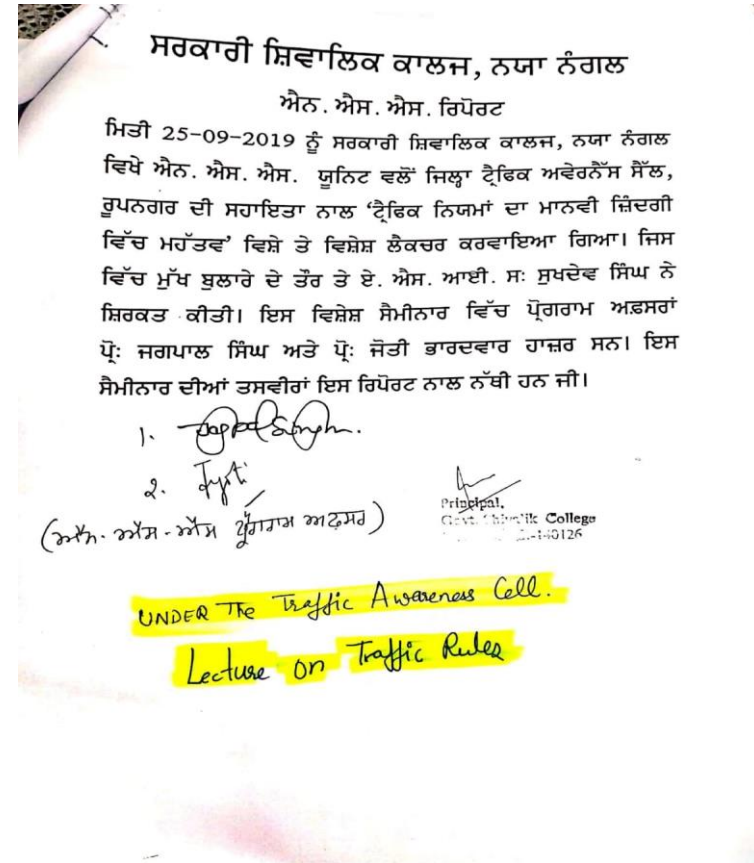 ਸਰਕਾਰੀ ਸ਼ਿਵਾਲਿਕ ਕਾਲਜ, ਨਯਾ ਨੰਗਲ
ਐਨ. ਐਸ. ਐਸ. ਰਿਪੋਰਟ
ਮਿਤੀ 25-09-2019 ਨੂੰ ਸਰਕਾਰੀ ਸ਼ਿਵਾਲਿਕ ਕਾਲਜ, ਨਯਾ ਨੰਗਲ
ਵਿਖੇ ਐਨ. ਐਸ. ਐਸ. ਯੂਨਿਟ ਵਲੋਂ ਜਿਲ੍ਹਾ ਟ੍ਰੈਫਿਕ ਅਵੇਰਨੈੱਸ ਸੈੱਲ,
ਰੂਪਨਗਰ ਦੀ ਸਹਾਇਤਾ ਨਾਲ ‘ਟ੍ਰੈਫਿਕ ਨਿਯਮਾਂ ਦਾ ਮਾਨਵੀ ਜ਼ਿੰਦਗੀ
ਵਿੱਚ ਮਹੱਤਵ’ ਵਿਸ਼ੇ ਤੇ ਵਿਸ਼ੇਸ਼ ਲੈਕਚਰ ਕਰਵਾਇਆ ਗਿਆ। ਜਿਸ
ਵਿੱਚ ਮੁੱਖ ਬੁਲਾਰੇ ਦੇ ਤੌਰ ਤੇ ਏ. ਐਸ. ਆਈ. ਸਃ ਸੁਖਦੇਵ ਸਿੰਘ ਨੇ
ਸ਼ਿਰਕਤ ਕੀਤੀ। ਇਸ ਵਿਸ਼ੇਸ਼ ਸੈਮੀਨਾਰ ਵਿੱਚ ਪ੍ਰੋਗਰਾਮ ਅਫ਼ਸਰਾਂ
ਪ੍ਰੋਃ ਜਗਪਾਲ ਸਿੰਘ ਅਤੇ ਪ੍ਰੋਃ ਜੋਤੀ ਭਾਰਦਵਾਰ ਹਾਜ਼ਰ ਸਨ। ਇਸ
ਸੈਮੀਨਾਰ ਦੀਆਂ ਤਸਵੀਰਾਂ ਇਸ ਰਿਪੋਰਟ ਨਾਲ ਨੱਥੀ ਹਨ ਜੀ।
1. Jagpal Singh.
2. Jyoti
(ਐੱਨ. ਐੱਸ. ਐੱਸ ਪ੍ਰੋਗਰਾਮ ਅਫ਼ਸਰ)
Principal,
Govt. Shivalik College
-140126
UNDER The Traffic Awareness Cell.
Lecture on Traffic Rules